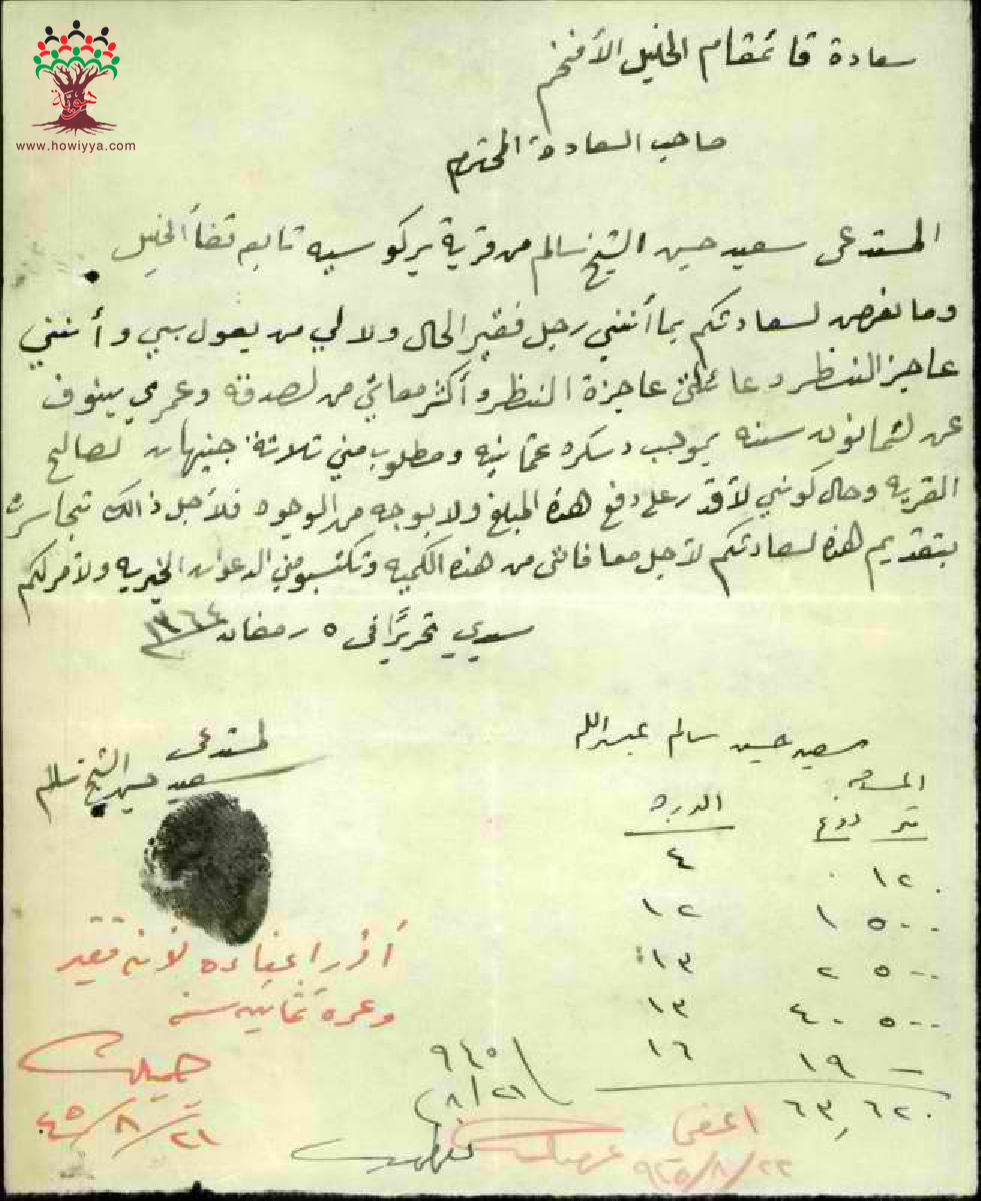 هوية
www.howiyya.com
سعادة قائمقام الخليل الأفخم
صاحب السعادة المحترم
المستدعي سعيد حسين الشيخ سالم من قرية بركوسيه تابع قضأ الخليل
وما نعرض لسعادتكم بما أنني رجل فقير الحال ولا لي من يعول بيي وأنني
عاجز النظر وعائلتي عاجزة النظر وأكثر معاشي من لصدقه وعمري ينوف
عن لثمانون سنه بموجب دسكره عثمانيه ومطلوب مني ثلاثة جنيهات لصالح
القريه وحال كوني لأقدر على دفع هذه المبلغ ولا بوجه من الوجوه فلأجل ذالك تجاسرت
بتقديم هذه لسعادتكم لأجل معافاتي من هذه الكميه وتكتسبو مني الدعوات الخيريه ولأمر لكم
سيدي تحريرًا في ٥ رمضان ١٣٦٤
لمستدعي
سعيد حسين الشيخ سالم
سعيد حسين سالم عبدالله
المساحه
الدرجه
متر دونم
٤
١٢٠ ٠
١٢
٥٠٠ ١
١٣
٥٠٠ ٢
١٣
٥٠٠ ٤٠
١٦
— ١٩
٦٣,٦٢٠
أقرر اعفاءه لأنه فقير
وعمره ثمانين سنه
٢١/٨/٤٥
٩٤٥
٢١/٨
اعفي
٢٢/٨/٩٤٥